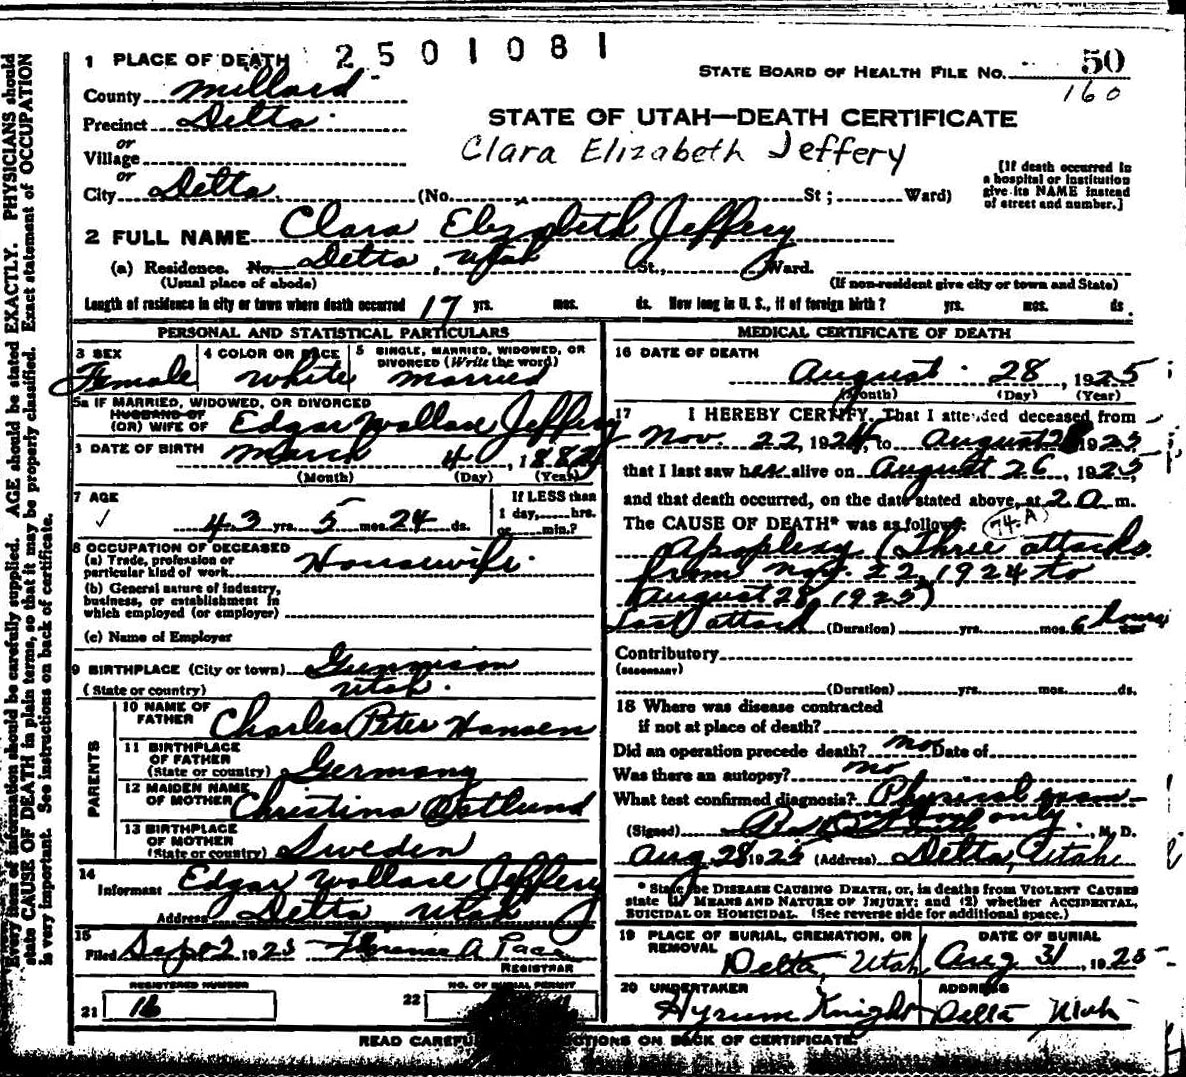 2501081
1 PLACE OF DEATH
STATE BOARD OF HEALTH FILE NO. 50
160
County Millard
Precinct Delta
or
Village
or
City Delta (No. St; Ward)
STATE OF UTAH—DEATH CERTIFICATE
Clara Elizabeth Jeffery
[If death occurred in
a hospital or institution
give its NAME instead
of street and number.]
2 FULL NAME Clara Elizabeth Jeffery
(a) Residence. No. Delta, Utah St., Ward.
(Usual place of abode)
(If non-resident give city or town and State)
Length of residence in city or town where death occurred 17 yrs. mos. ds. How long in U. S., if of foreign birth? yrs. mos. ds.
PERSONAL AND STATISTICAL PARTICULARS
3 SEX
Female
4 COLOR OR RACE
White
5 SINGLE, MARRIED, WIDOWED, OR
DIVORCED (Write the word)
Married
5a IF MARRIED, WIDOWED, OR DIVORCED
HUSBAND OF
(OR) WIFE OF Edgar Wallace Jeffery
DATE OF BIRTH
March 4, 1882
(Month) (Day) (Year)
7 AGE
43 yrs. 5 mos. 24 ds.
If LESS than
1 day, hrs.
or min.?
8 OCCUPATION OF DECEASED
(a) Trade, profession or
particular kind of work Housewife
(b) General nature of industry,
business, or establishment in
which employed (or employer)
(c) Name of Employer
9 BIRTHPLACE (City or town) Gunnison
(State or country) Utah.
PARENTS
10 NAME OF
FATHER Charles Peter Hansen
11 BIRTHPLACE
OF FATHER
(State or country) Germany
12 MAIDEN NAME
OF MOTHER Christina Ostlund
13 BIRTHPLACE
OF MOTHER
(State or country) Sweden
14
Informant Edgar Wallace Jeffery
Address Delta Utah
15
Filed Sept 2 1925 Florence A
REGISTRAR
REGISTERED NUMBER
21 16
22 NO. OF BURIAL PERMIT
MEDICAL CERTIFICATE OF DEATH
16 DATE OF DEATH
August 28, 1925
(Month) (Day) (Year)
17 I HEREBY CERTIFY, That I attended deceased from
Nov. 22, 1924, to August 28 1925,
that I last saw her alive on August 26, 1925,
and that death occurred, on the date stated above, at 2 a m.
The CAUSE OF DEATH* was as follows: 74-A
Apoplexy (Three attacks
from Nov. 22, 1924 to
August 28, 1925)
Last attack (Duration) yrs. mos. 6 hours
Contributory
(SECONDARY)
(Duration) yrs. mos. ds.
18 Where was disease contracted
if not at place of death?
Did an operation precede death? no Date of
Was there an autopsy? no
What test confirmed diagnosis? Physical exam-
only.
(Signed) , M. D.
Aug. 28 1925 (Address) Delta, Utah
* State the DISEASE CAUSING DEATH, or, in deaths from VIOLENT CAUSES
state (1) MEANS AND NATURE OF INJURY; and (2) whether ACCIDENTAL,
SUICIDAL OR HOMICIDAL. (See reverse side for additional space.)
19 PLACE OF BURIAL, CREMATION, OR
REMOVAL
Delta, Utah
DATE OF BURIAL
Aug 31, 1925
20 UNDERTAKER
Hyrum Knight
ADDRESS
Delta Utah
READ INSTRUCTIONS ON BACK OF CERTIFICATE.
Every item of information should be carefully supplied. AGE should be stated EXACTLY. PHYSICIANS should
state CAUSE OF DEATH in plain terms, so that it may be properly classified. Exact statement of OCCUPATION
is very important. See instructions on back of certificate.